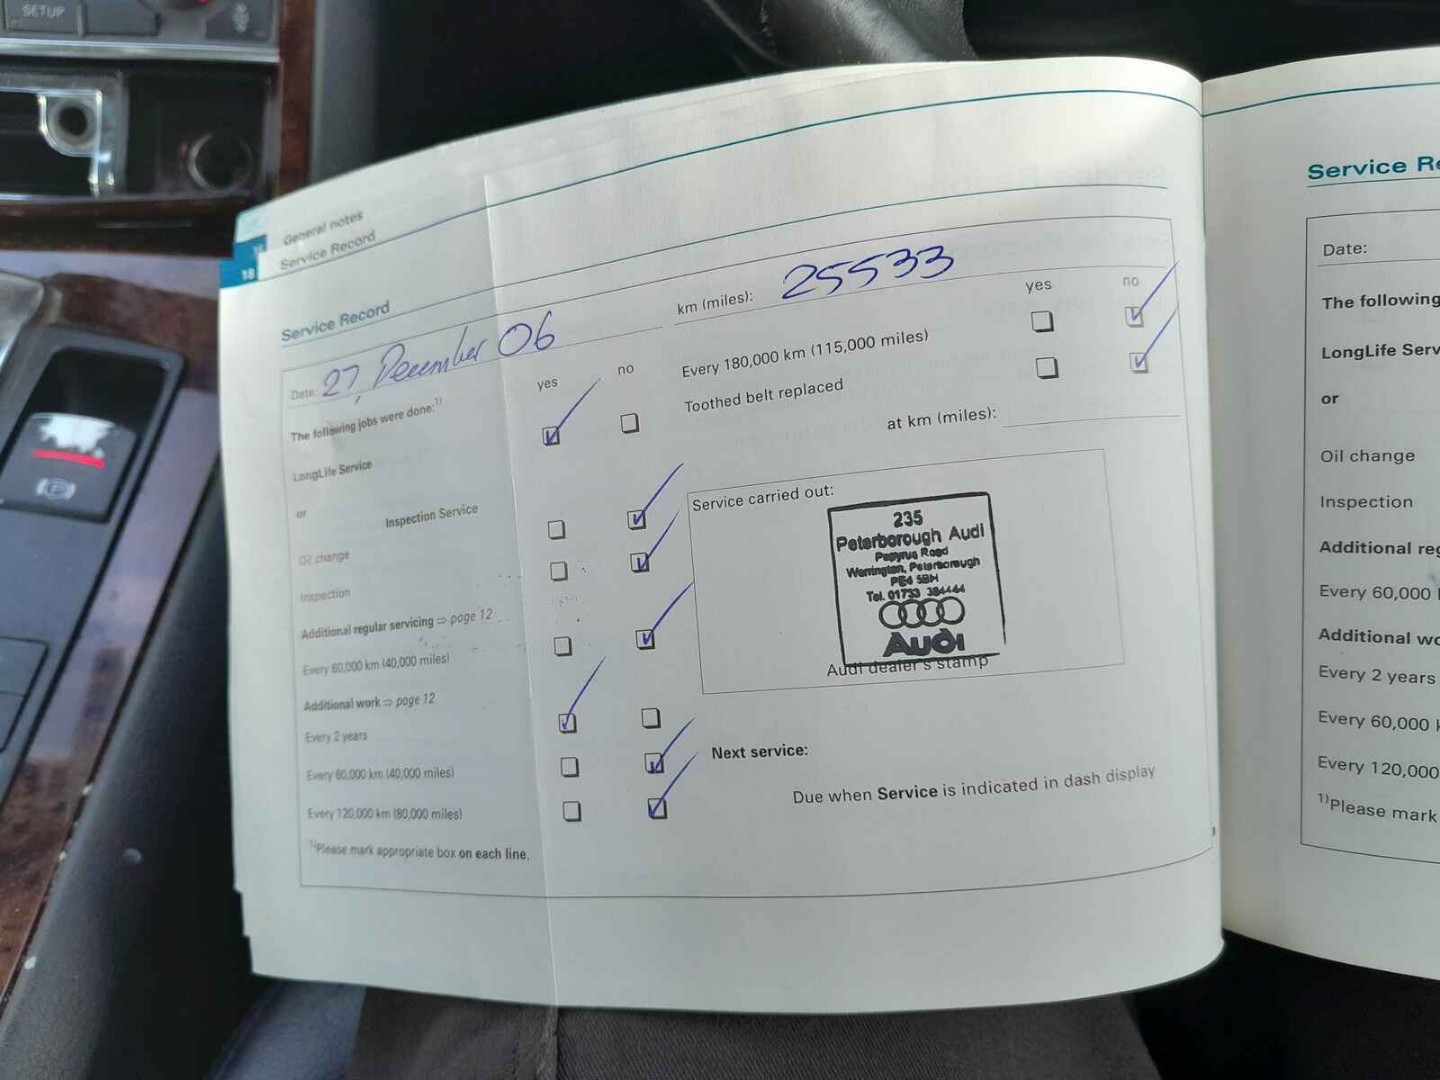 SETUP
General notes
18
Service Record
Service Record
Date: 27, December 06
km (miles): 25533
The following jobs were done:1)
yes
no
LongLife Service
or
Inspection Service
Oil change
Inspection
Additional regular servicing ⇒ page 12
Every 60,000 km (40,000 miles)
Additional work ⇒ page 12
Every 2 years
Every 60,000 km (40,000 miles)
Every 120,000 km (80,000 miles)
1)Please mark appropriate box on each line.
yes
no
Every 180,000 km (115,000 miles)
Toothed belt replaced
at km (miles):
Service carried out:
235
Peterborough Audi
Papyrus Road
Werrington, Peterborough
PE4 5BH
Tel. 01733 384444
Audi
Audi dealer's stamp
Next service:
Due when Service is indicated in dash display
Service Re
Date:
The following
LongLife Serv
or
Oil change
Inspection
Additional reg
Every 60,000
Additional wo
Every 2 years
Every 60,000 k
Every 120,000
1)Please mark